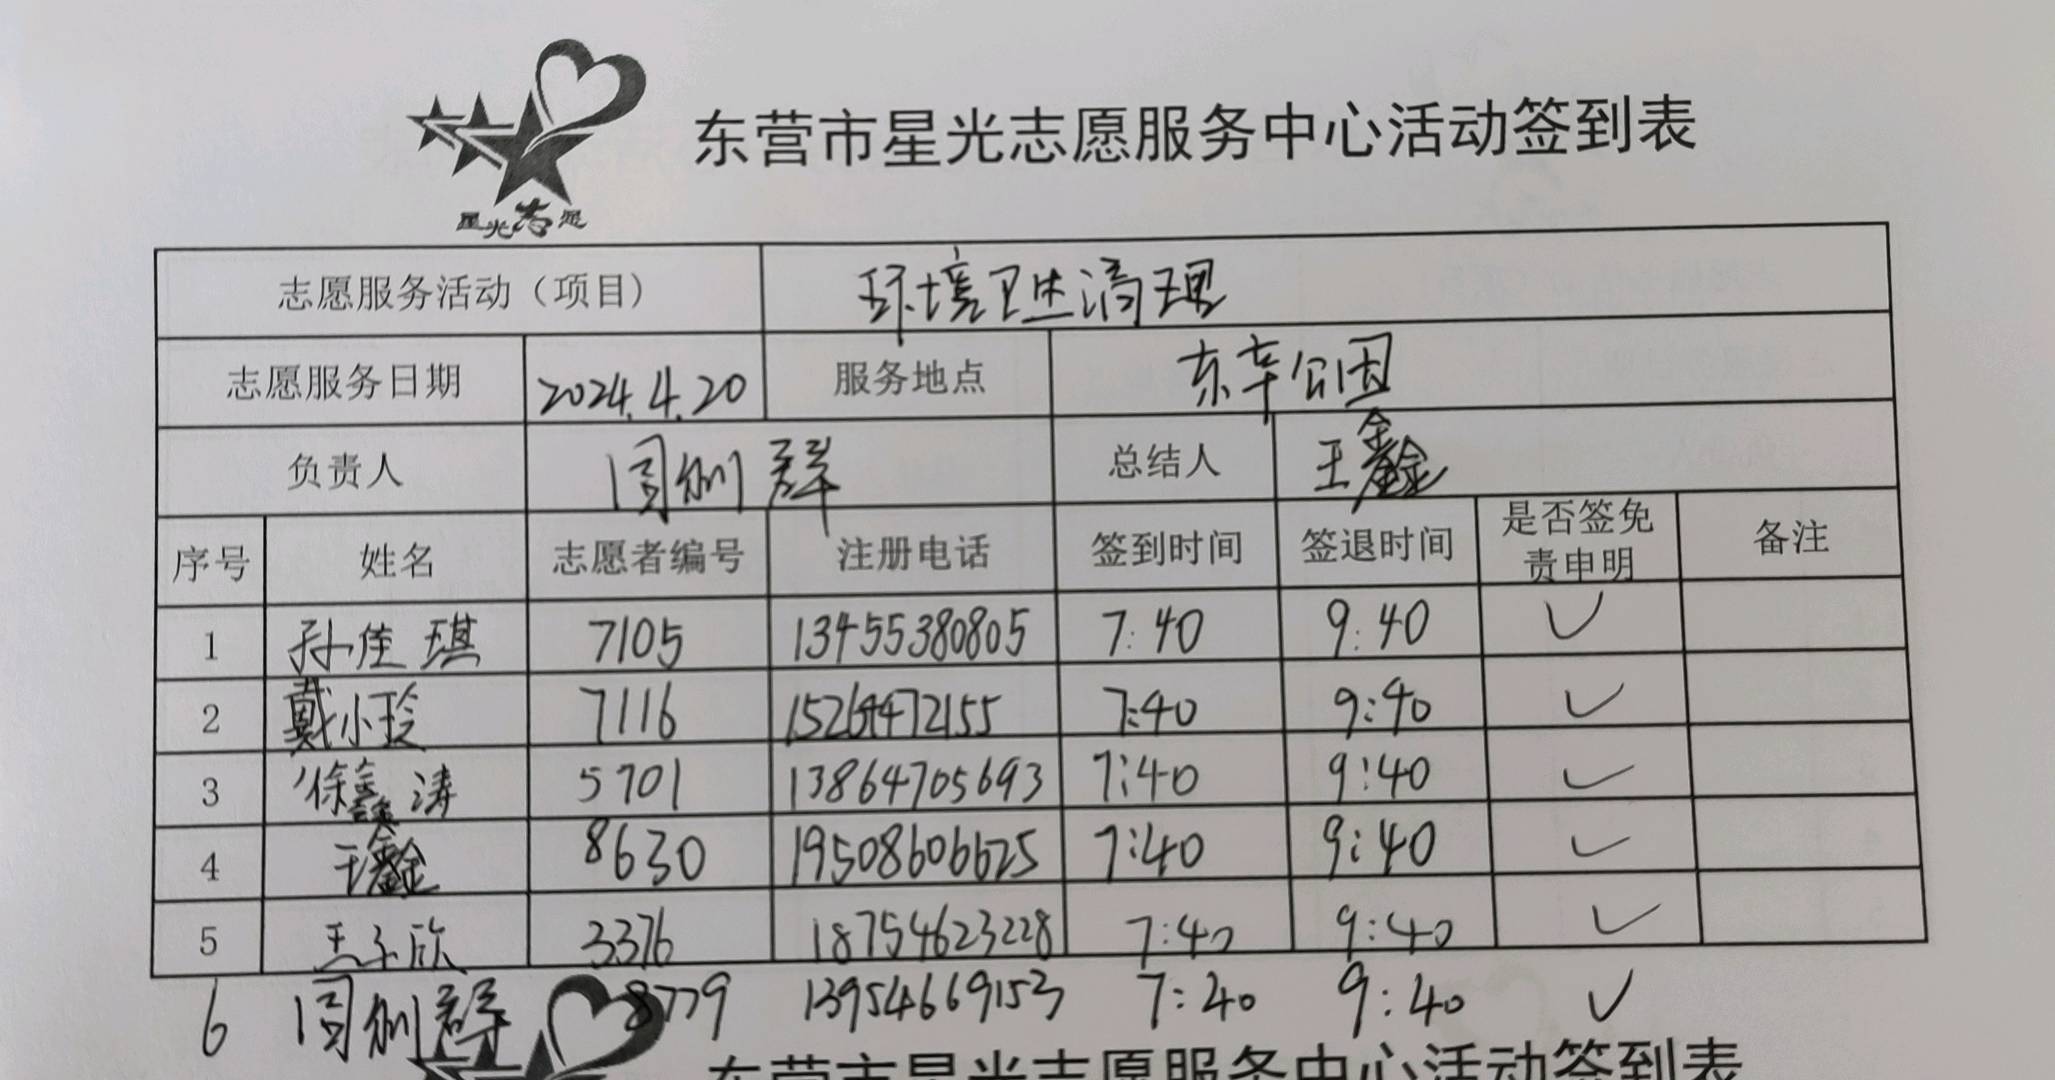 星光志愿
东营市星光志愿服务中心活动签到表
志愿服务活动（项目） 环境卫生清理
志愿服务日期 2024.4.20 服务地点 东辛公园
负责人 周俐群 总结人 王鑫
序号 姓名 志愿者编号 注册电话 签到时间 签退时间 是否签免责申明 备注
1 孙佳琪 7105 13455380805 7:40 9:40 ✓
2 戴小玲 7116 7:40 9:40 ✓
3 徐鑫涛 5701 13864705693 7:40 9:40 ✓
4 王鑫 8630 19508606625 7:40 9:40 ✓
5 王子欣 3376 18754623228 7:40 9:40 ✓
6 周俐群 8779 13954669153 7:40 9:40 ✓
东营市星光志愿服务中心活动签到表